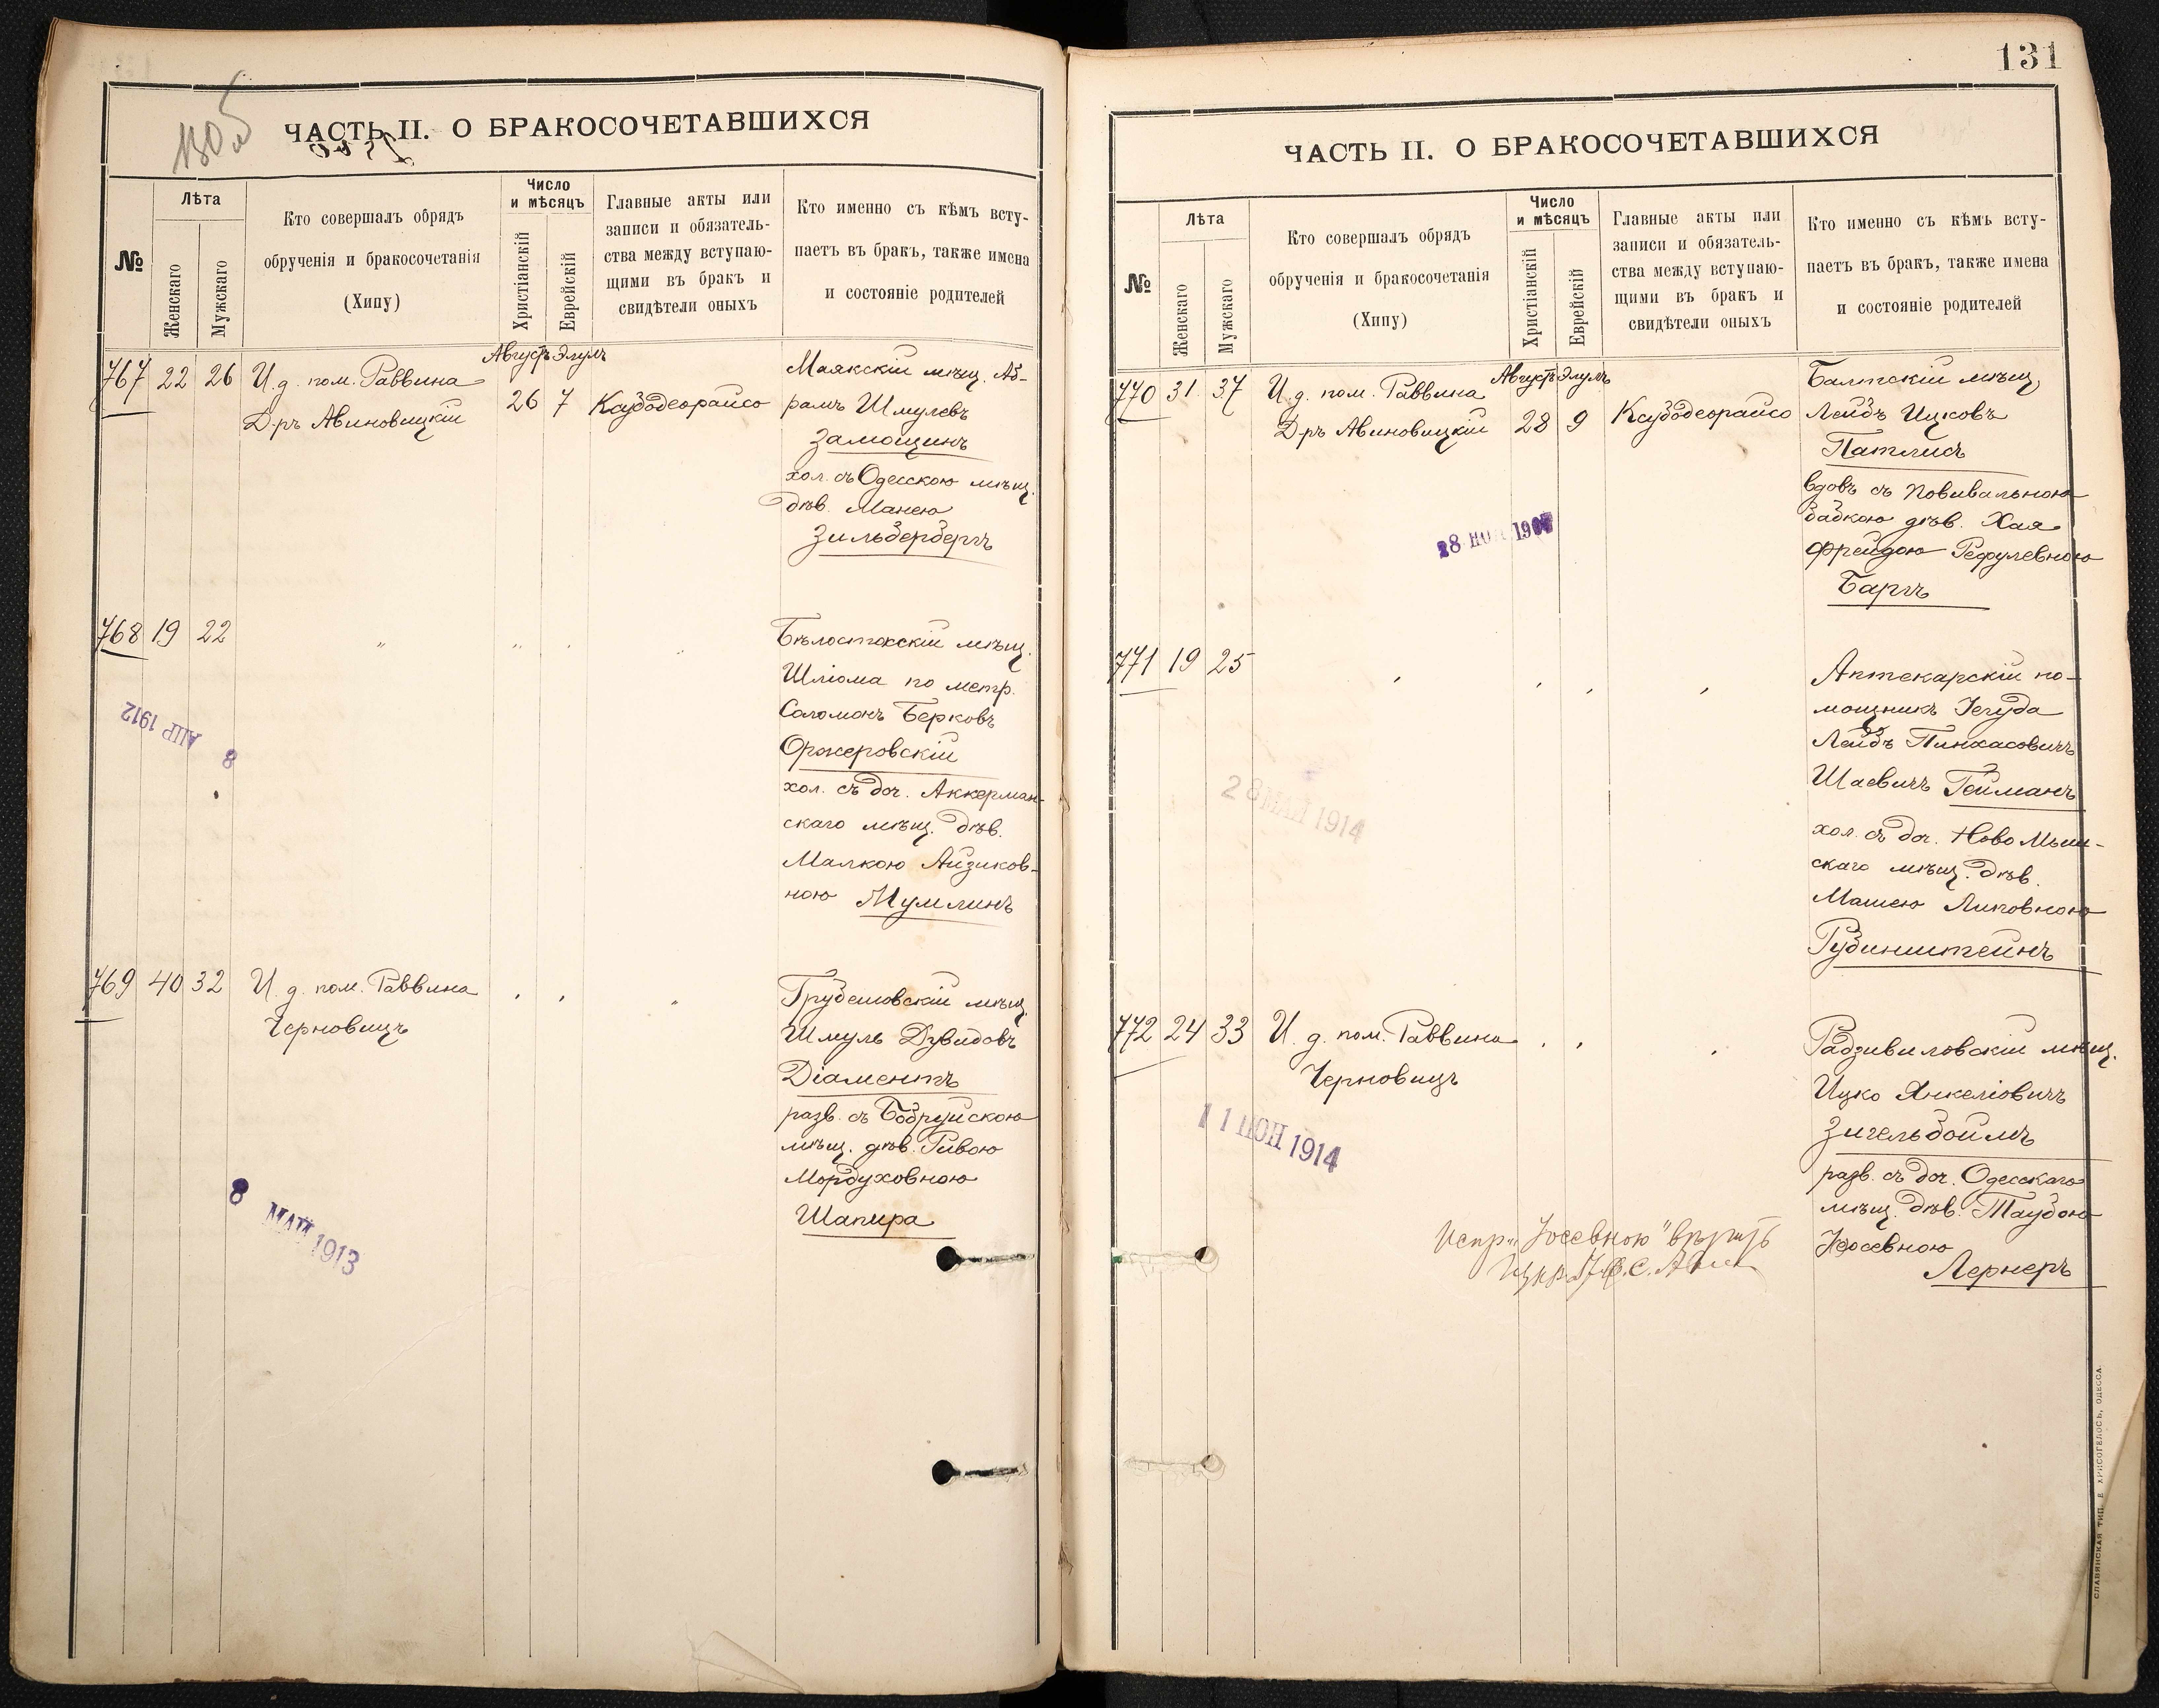 130 об
ЧАСТЬ II. О БРАКОСОЧЕТАВШИХСЯ
№
Лѣта
Женскаго
Мужскаго
Кто совершалъ обрядъ
обрученія и бракосочетанія
(Хипу)
Число
и мѣсяцъ
Христіанскій
Еврейскій
Главные акты или
записи и обязатель-
ства между вступаю-
щими въ бракъ и
свидѣтели оныхъ
Кто именно съ кѣмъ всту-
паетъ въ бракъ, также имена
и состояніе родителей
Августъ Элулъ
767 22 26 И. д. пом. Раввина
Д-ръ Авиновицкій
26 7 Каубодеорайсо
Маякскій мѣщ. Аб-
рамъ Шмулевъ
Замощинъ
хол. съ Одесскою мѣщ.
дѣв. Манею
Зильбербергъ
768 19 22 " " " "
Бѣлостокскій мѣщ.
Шліома по метр.
Соломонъ Берковъ
Оржеровскій
хол. съ доч. Аккерман-
скаго мѣщ. дѣв.
Малкою Айзиков-
ною Мумлинъ
8 АПР 1912
769 40 32 И. д. пом. Раввина
Черновицъ
" " "
Грубешовскій мѣщ.
Шмуль Дувидовъ
Діаментъ
разв. съ Бобруйскою
мѣщ. дѣв. Ривою
Мордуховною
Шапира
8 МАЙ 1913
131
ЧАСТЬ II. О БРАКОСОЧЕТАВШИХСЯ
№
Лѣта
Женскаго
Мужскаго
Кто совершалъ обрядъ
обрученія и бракосочетанія
(Хипу)
Число
и мѣсяцъ
Христіанскій
Еврейскій
Главные акты или
записи и обязатель-
ства между вступаю-
щими въ бракъ и
свидѣтели оныхъ
Кто именно съ кѣмъ всту-
паетъ въ бракъ, также имена
и состояніе родителей
Августъ Элулъ
770 31 37 И. д. пом. Раввина
Д-ръ Авиновицкій
28 9 Каубодеорайсо
Балтскій мѣщ.
Лейбъ Ицковъ
Патлисъ
вдовъ съ повивальною
бабкою дѣв. Хая
Фрейдою Рефулевною
Баргъ
771 19 25 " " " "
Аптекарскій по-
мощникъ Іегуда
Лейбъ Пинхасовичъ
Шаевичъ Гейманъ
хол. съ доч. Ново Мын-
скаго мѣщ. дѣв.
Машею Липовною
Рубинштейнъ
28 МАЙ 1914
772 24 33 И. д. пом. Раввина
Черновицъ
" " "
Радзивиловскій мѣщ.
Ицко Янкеліовичъ
Зигельбоймъ
разв. съ доч. Одесскаго
мѣщ. дѣв. Таубою
Іосевною
Лернеръ
11 ІЮН 1914
Испр. "Іосевною" вѣрить
СЛАВЯНСКАЯ ТИП. Е. ХРИСОГЕЛОСЪ, ОДЕССА.